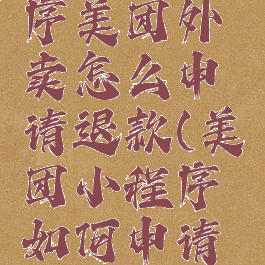 序美团外
卖怎么申
请退款(美
团小程序
如何申请